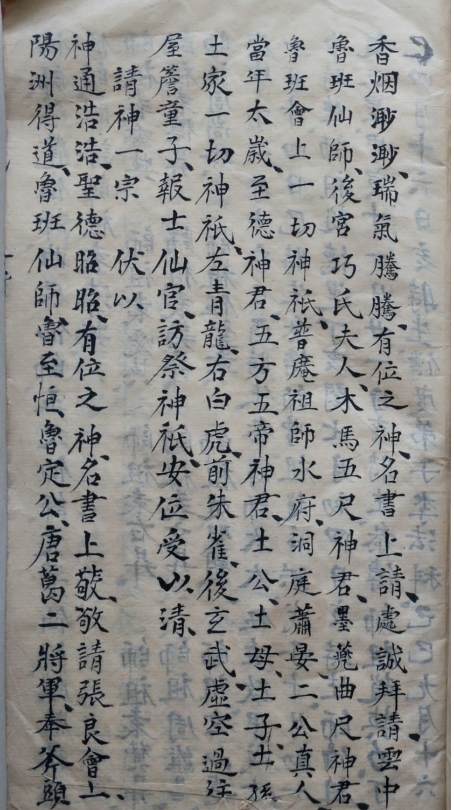 香烟渺渺、瑞氣騰騰、有位之神、名書上請、處誠拜請雲中
魯班仙師、後宮巧氏夫人、木馬五尺神君、墨斗曲尺神君、
魯班會上一切神祇、普庵祖師水府洞庭蕭晏二公真人
當年太歲、至德神君、五方五帝神君、土公、土母、土子、土孫
土家一切神祇、左青龍、右白虎、前朱雀、後玄武、虛空過往
屋簷童子、報士仙官、訪祭神祇、安位受以清、
請神一宗　伏以
神通浩浩、聖德昭昭、有位之神、名書上敬、敬請張良會上、
陽洲得道、魯班仙師、魯至恒、魯定公、唐葛二將軍、奉斧頭